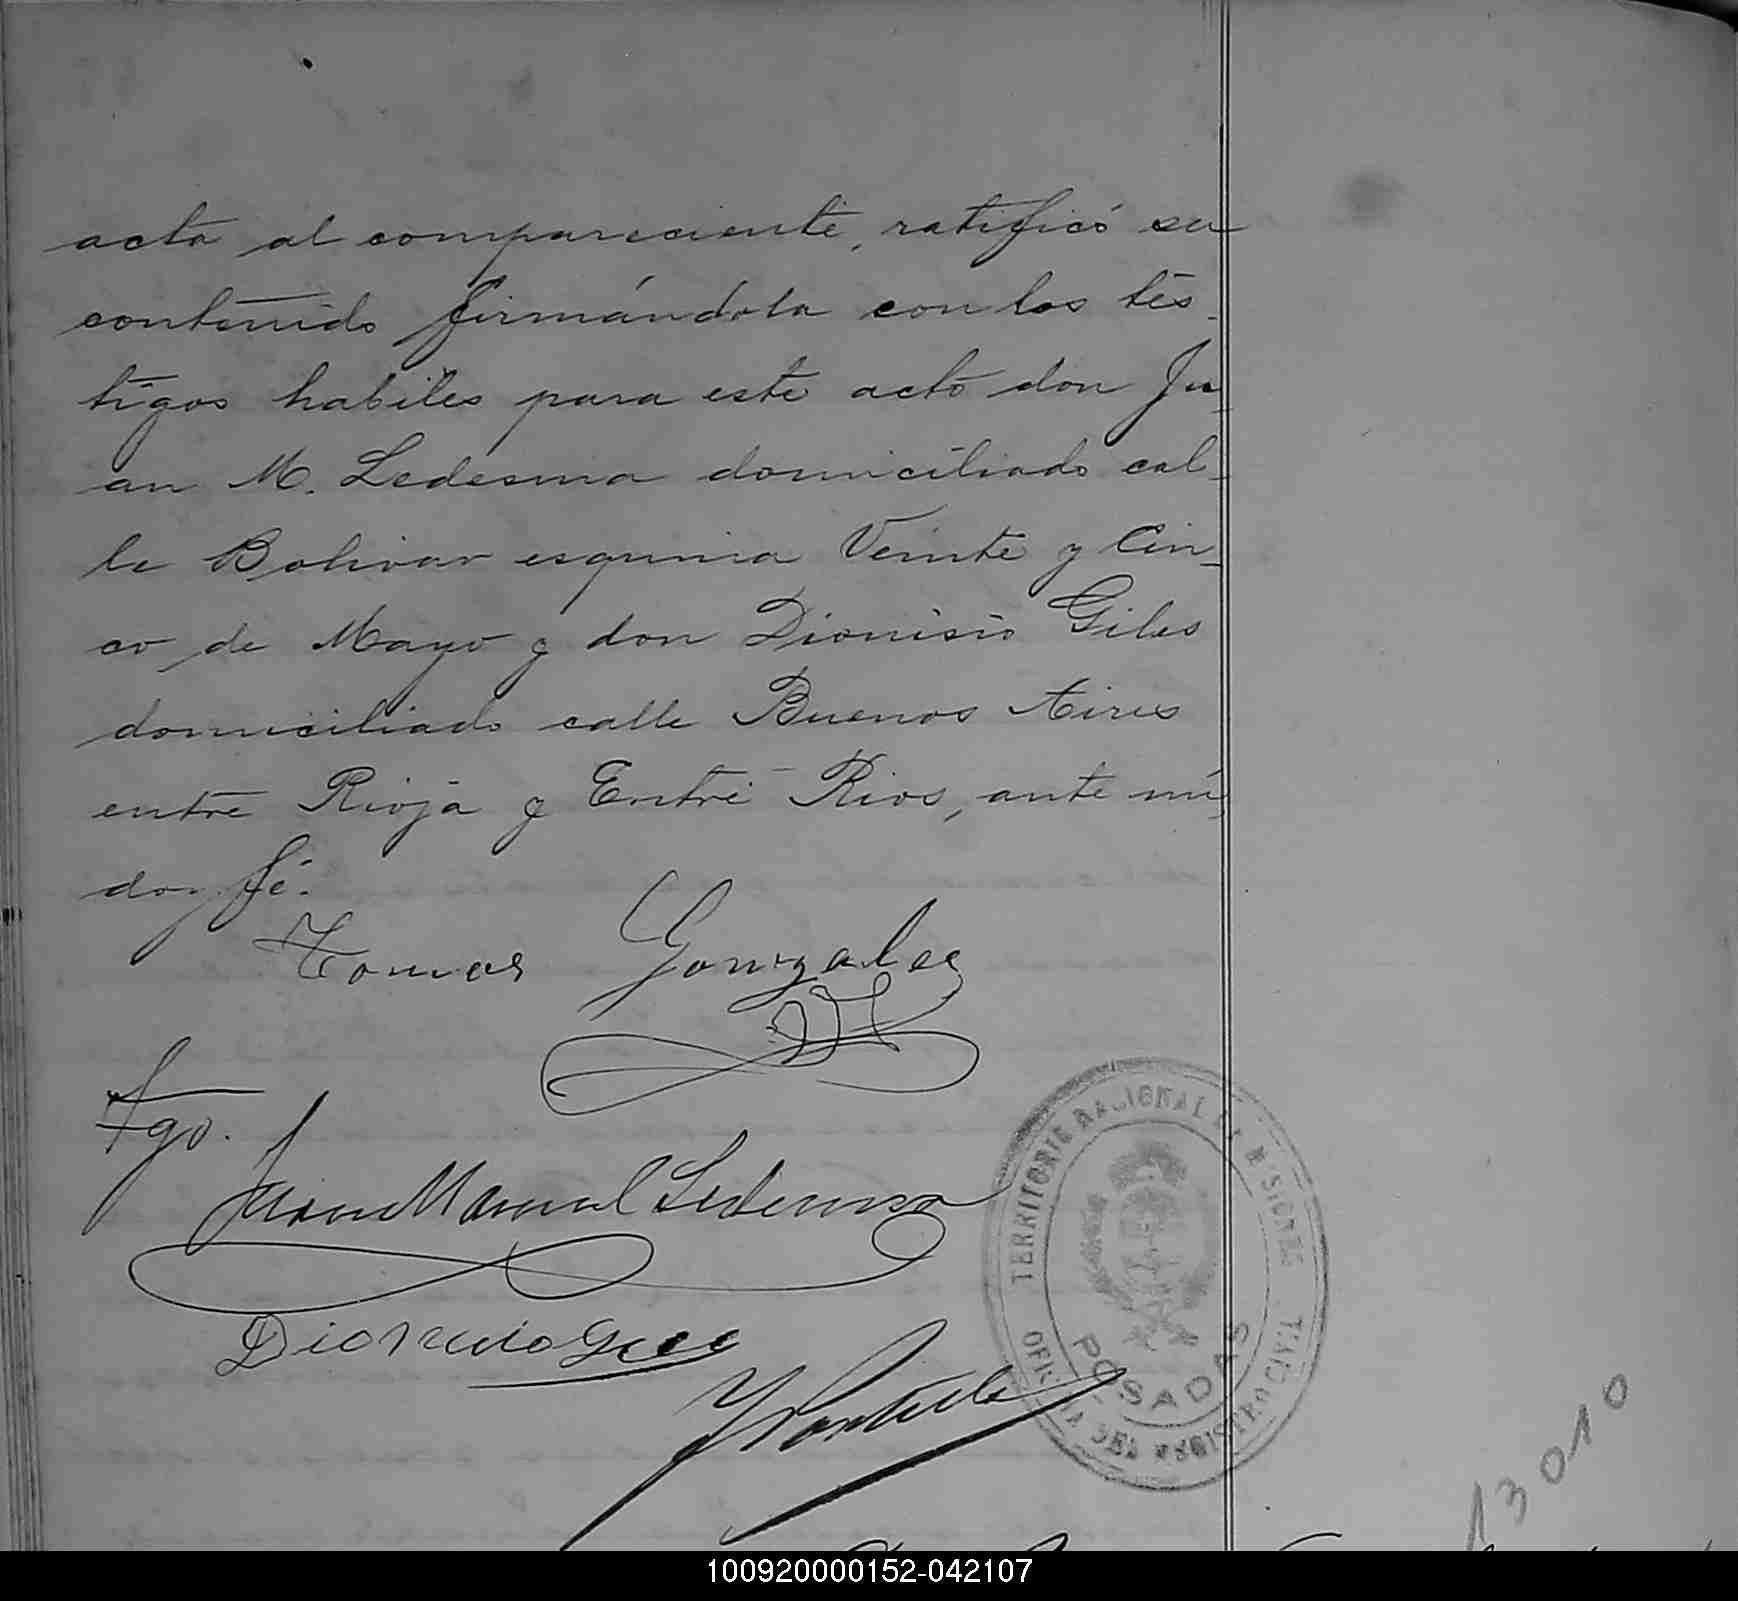 acta al compareciente, ratificó su
contenido firmándola con los tes-
tigos habiles para este acto don Ju-
an M. Ledesma domiciliado cal-
le Bolivar esquina Veinte y Cin-
co de Mayo y don Dionisio Giles
domiciliado calle Buenos Aires
entre Rioja y Entre Rios, ante mi,
doy fé.
Tomas Gonzalez
Tgo.
Juan Manuel Ledesma
Dionicio Giles
TERRITORIO NACIONAL DE MISIONES
POSADAS
OFICINA DEL REGISTRO CIVIL
13010
100920000152-042107